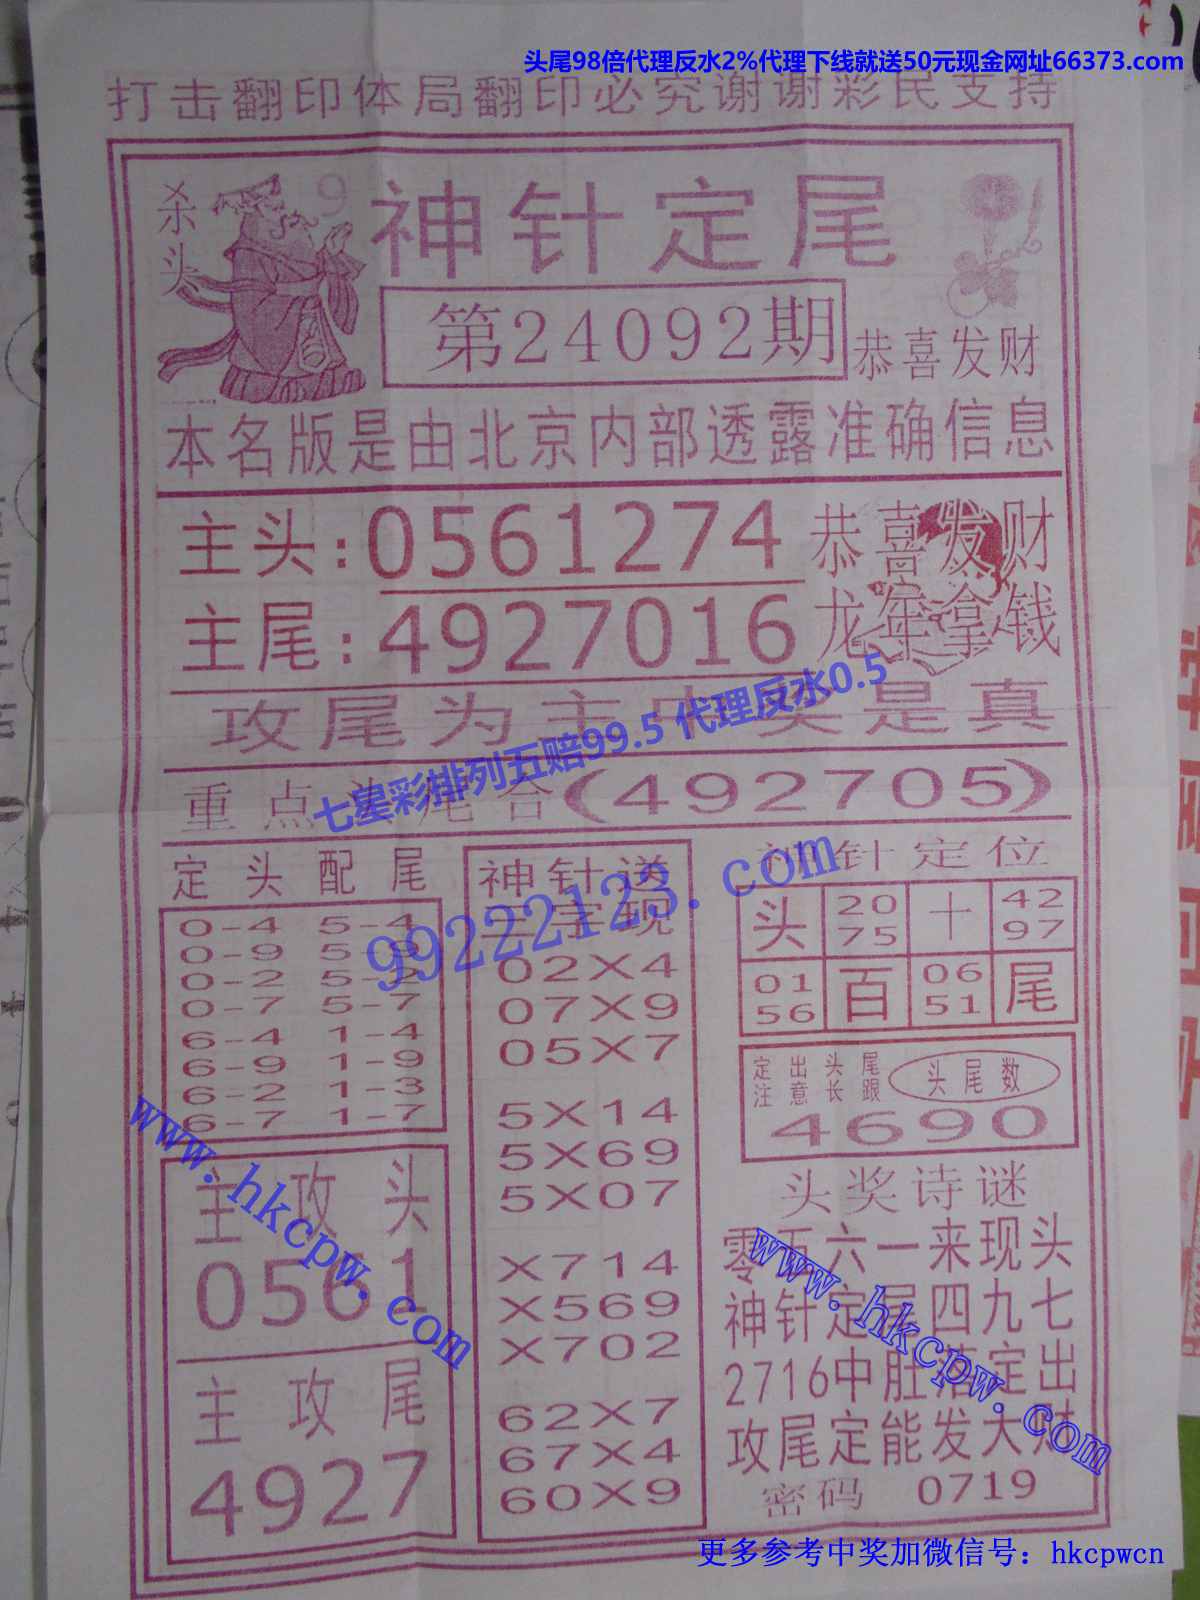 头尾98倍代理反水2%代理下线就送50元现金网址66373.com
打击翻印体局翻印必究谢谢彩民支持
杀头
9
神针定尾
第24092期
恭喜发财
本名版是由北京内部透露准确信息
主头:0561274
恭喜发财
主尾:4927016
龙年拿钱
攻尾为主中奖是真
七星彩排列五赔99.5 代理反水0.5
重点头尾合(492705)
99222123.com
定头配尾
0-4 5-4
0-9 5-9
0-2 5-2
0-7 5-7
6-4 1-4
6-9 1-9
6-2 1-3
6-7 1-7
主攻头
0561
主攻尾
4927
神针送
三字现
02X4
07X9
05X7
5X14
5X69
5X07
X714
X569
X702
62X7
67X4
60X9
神针定位
头 2075 十 4297
0156 百 0651 尾
定出头尾
注意长跟
头尾数
4690
头奖诗谜
零五六一来现头
神针定尾四九七
2716中肚落定出
攻尾定能发大财
密码 0719
www.hkcpw.com
www.hkcpw.com
更多参考中奖加微信号：hkcpwcn